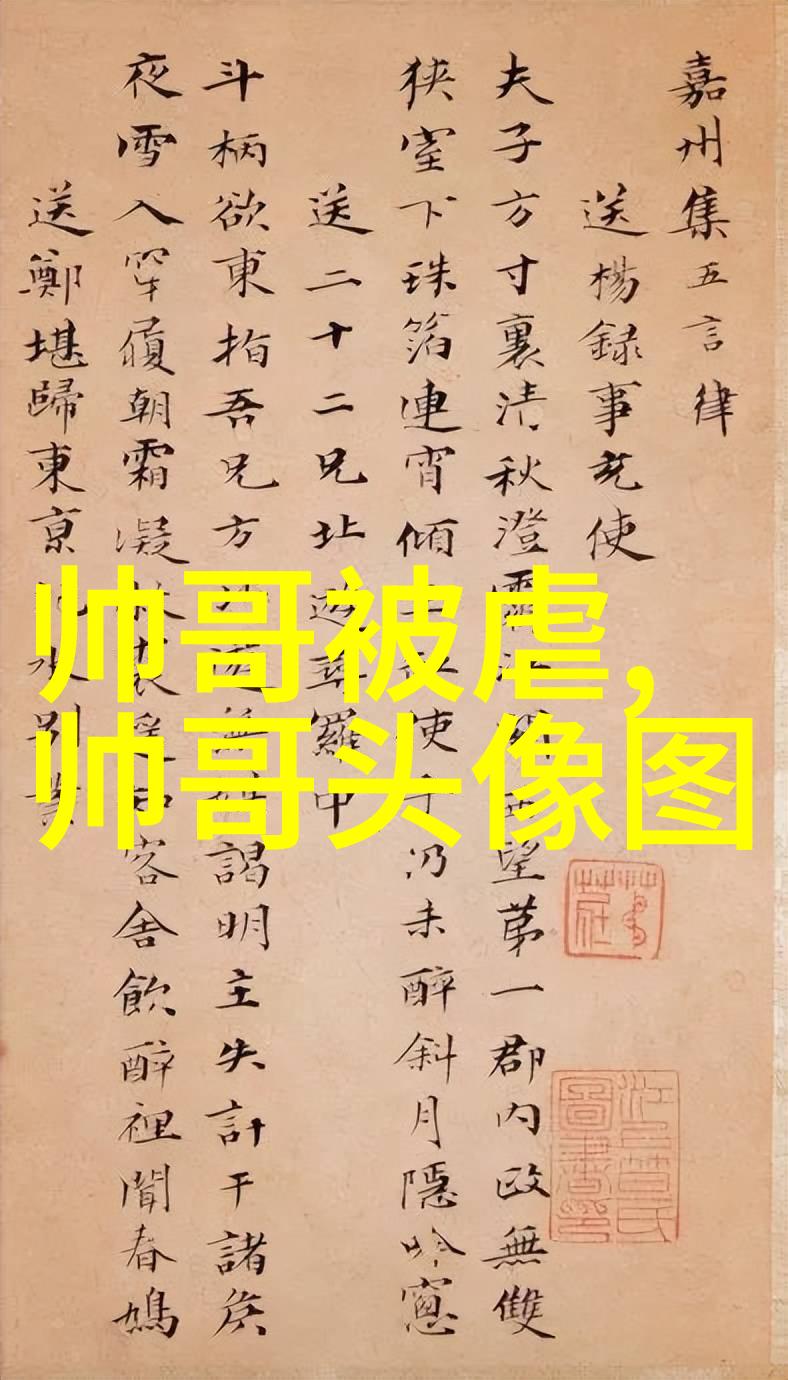 嘉州集五言律
送楊録事充使
夫子方寸裏清秋澄霽江 西望第一郡內政無雙
狹室下珠箔連宵傾 使乎仍未醉斜月隱吟窻
送二十二兄北遊尋羅中
斗柄欲東指吾兄方 遊無 謁明主失計干諸侯
夜雪入穿履朝霜凝 裘遥 客舍飲醉裡聞春鳩
送鄭堪歸東京 水別業
帅哥被虐,
帅哥头像图